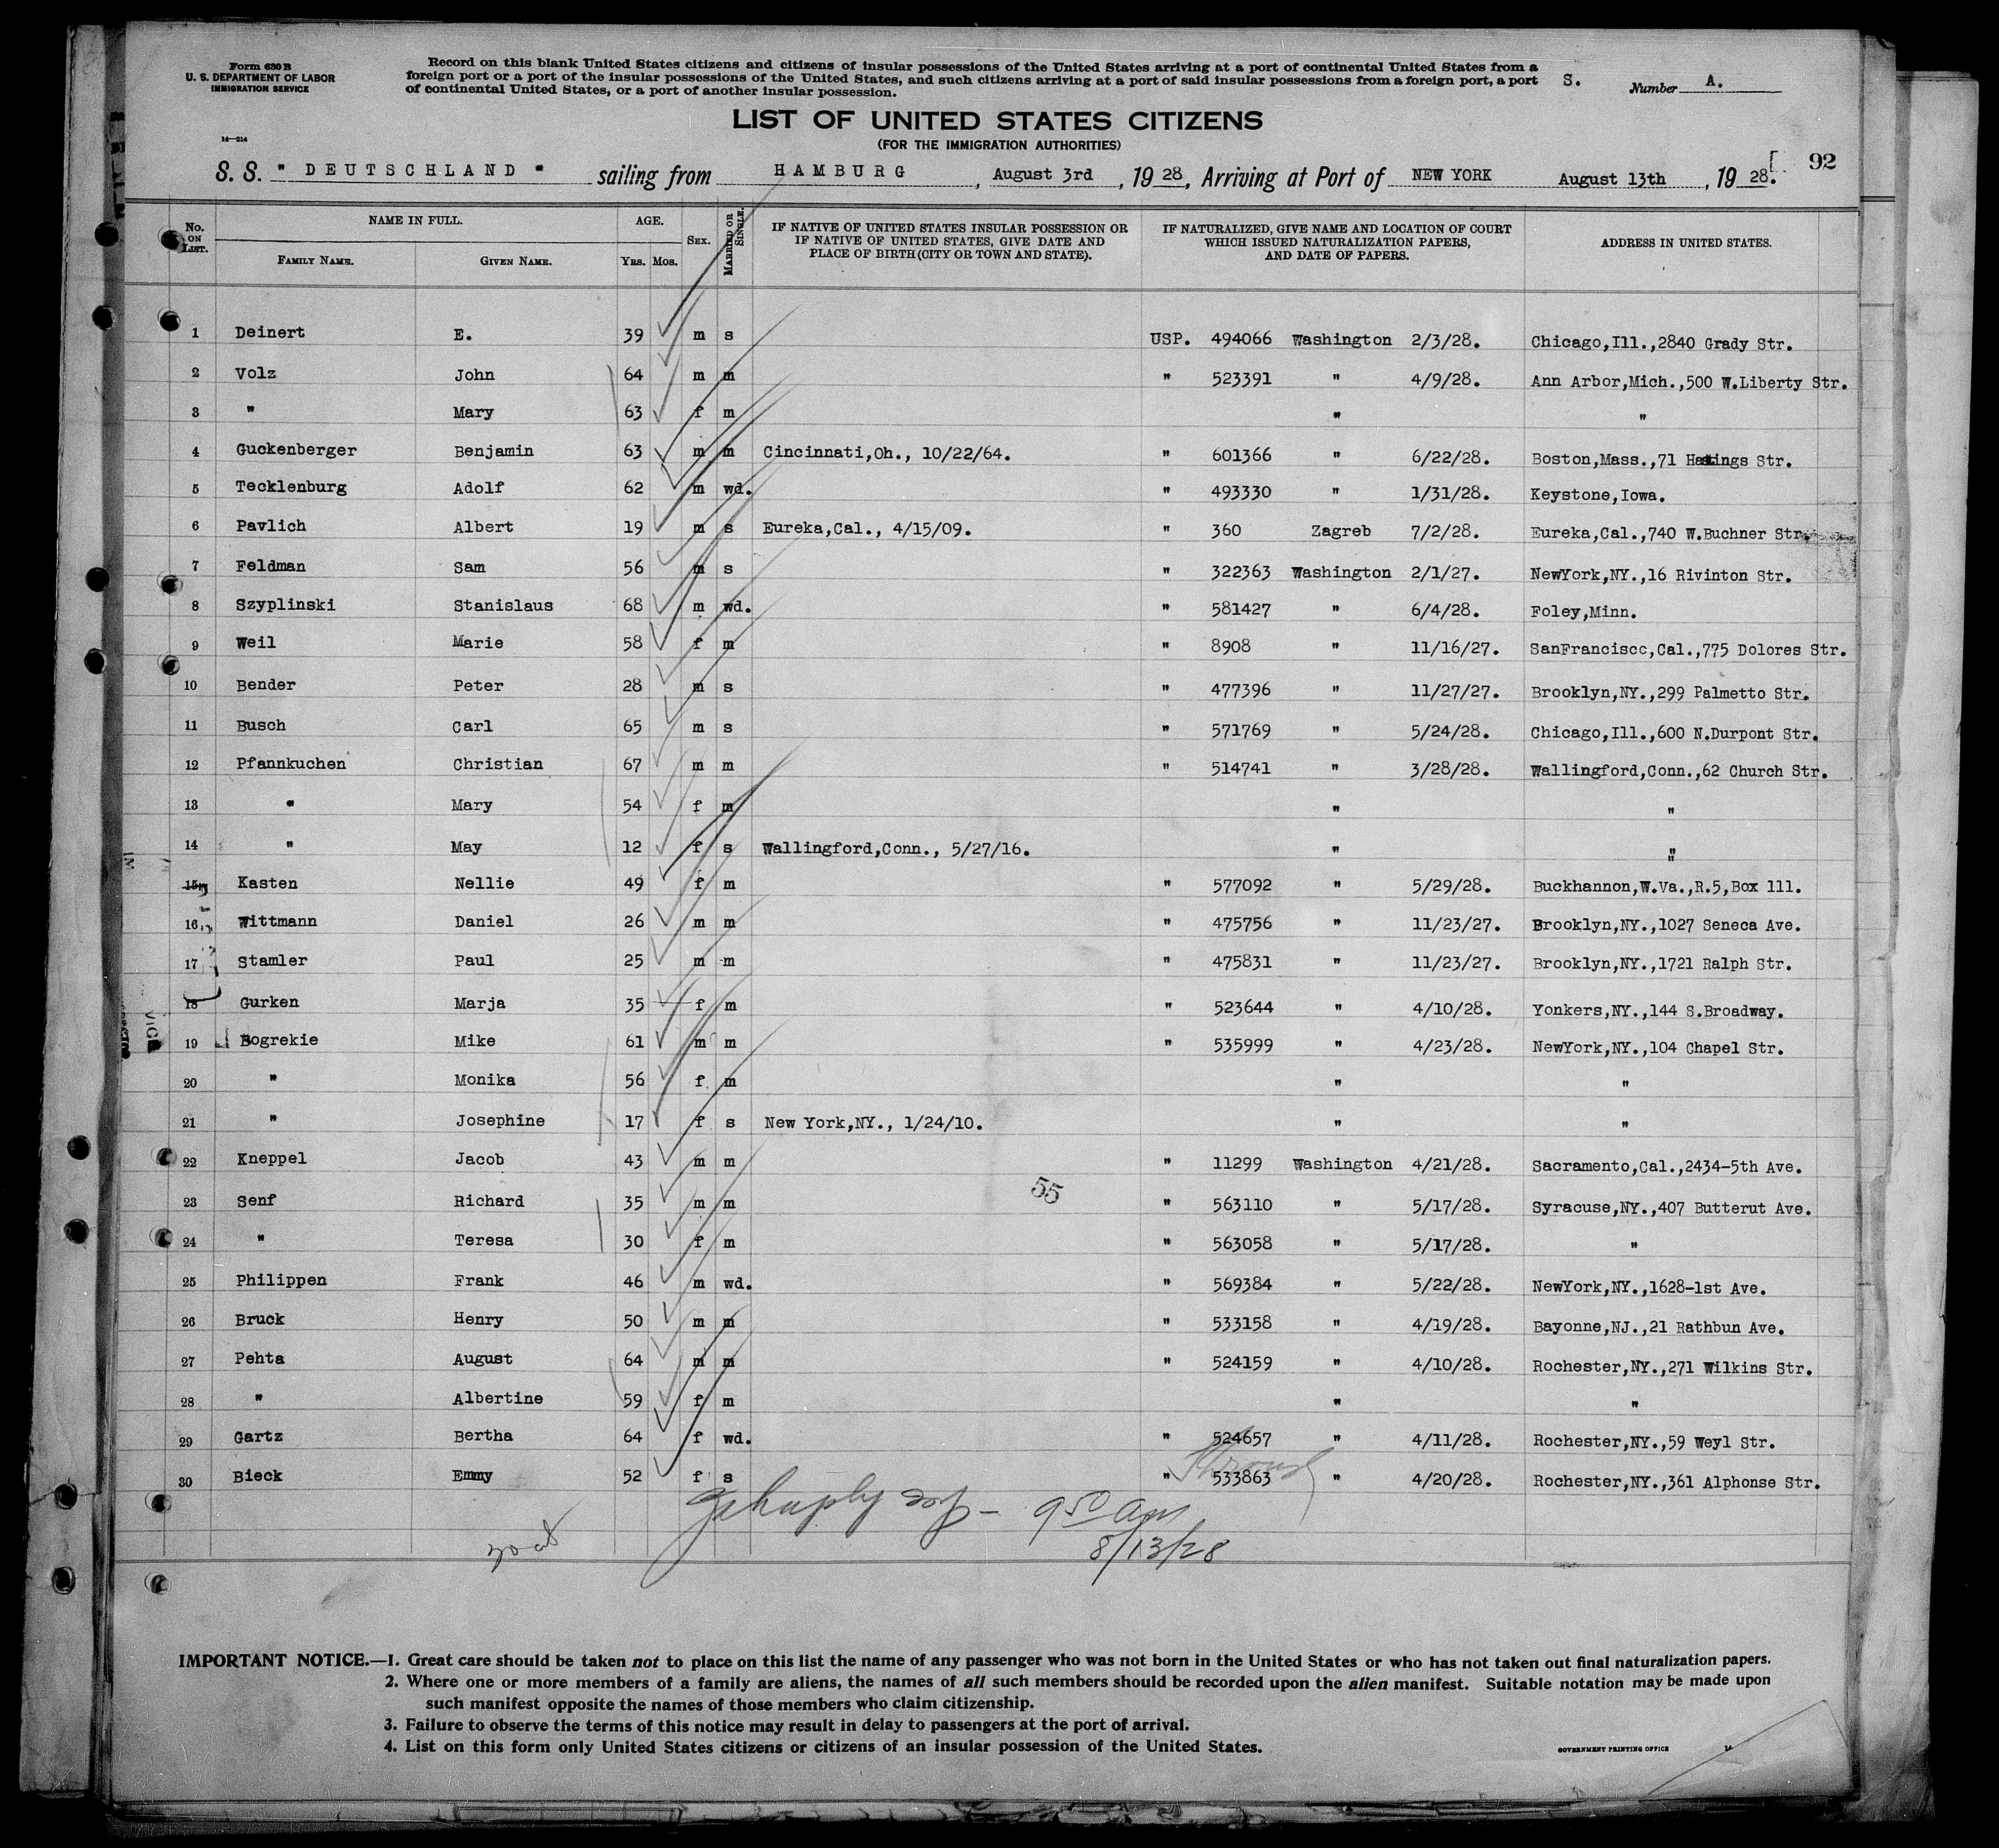 Form 630 B
U. S. DEPARTMENT OF LABOR
IMMIGRATION SERVICE
14—214
Record on this blank United States citizens and citizens of insular possessions of the United States arriving at a port of continental United States from a
foreign port or a port of the insular possessions of the United States, and such citizens arriving at a port of said insular possessions from a foreign port, a port
of continental United States, or a port of another insular possession.
S. Number A.
LIST OF UNITED STATES CITIZENS
(FOR THE IMMIGRATION AUTHORITIES)
92
S. S. " DEUTSCHLAND " sailing from HAMBURG, August 3rd, 1928, Arriving at Port of NEW YORK August 13th, 1928.
No. ON LIST. NAME IN FULL. FAMILY NAME. GIVEN NAME. AGE. YRS. MOS. SEX. MARRIED OR SINGLE. IF NATIVE OF UNITED STATES INSULAR POSSESSION OR IF NATIVE OF UNITED STATES, GIVE DATE AND PLACE OF BIRTH (CITY OR TOWN AND STATE). IF NATURALIZED, GIVE NAME AND LOCATION OF COURT WHICH ISSUED NATURALIZATION PAPERS, AND DATE OF PAPERS. ADDRESS IN UNITED STATES.
1 Deinert E. 39 m s USP. 494066 Washington 2/3/28. Chicago,Ill.,2840 Grady Str.
2 Volz John 64 m m " 523391 " 4/9/28. Ann Arbor,Mich.,500 W.Liberty Str.
3 " Mary 63 f m " "
4 Guckenberger Benjamin 63 m m Cincinnati,Oh., 10/22/64. " 601366 " 6/22/28. Boston,Mass.,71 Hastings Str.
5 Tecklenburg Adolf 62 m wd. " 493330 " 1/31/28. Keystone,Iowa.
6 Pavlich Albert 19 m s Eureka,Cal., 4/15/09. " 360 Zagreb 7/2/28. Eureka,Cal.,740 W.Buchner Str.
7 Feldman Sam 56 m s " 322363 Washington 2/1/27. NewYork,NY.,16 Rivinton Str.
8 Szyplinski Stanislaus 68 m wd. " 581427 " 6/4/28. Foley,Minn.
9 Weil Marie 58 f m " 8908 " 11/16/27. SanFrancisco,Cal.,775 Dolores Str.
10 Bender Peter 28 m s " 477396 " 11/27/27. Brooklyn,NY.,299 Palmetto Str.
11 Busch Carl 65 m s " 571769 " 5/24/28. Chicago,Ill.,600 N.Durpont Str.
12 Pfannkuchen Christian 67 m m " 514741 " 3/28/28. Wallingford,Conn.,62 Church Str.
13 " Mary 54 f m " "
14 " May 12 f s Wallingford,Conn., 5/27/16. " "
15 Kasten Nellie 49 f m " 577092 " 5/29/28. Buckhannon,W.Va.,R.5,Box 111.
16 Wittmann Daniel 26 m m " 475756 " 11/23/27. Brooklyn,NY.,1027 Seneca Ave.
17 Stamler Paul 25 m m " 475831 " 11/23/27. Brooklyn,NY.,1721 Ralph Str.
18 Gurken Marja 35 f m " 523644 " 4/10/28. Yonkers,NY.,144 S.Broadway.
19 Bogrekie Mike 61 m m " 535999 " 4/23/28. NewYork,NY.,104 Chapel Str.
20 " Monika 56 f m " "
21 " Josephine 17 f s New York,NY., 1/24/10. " "
22 Kneppel Jacob 43 m m " 11299 Washington 4/21/28. Sacramento,Cal.,2434-5th Ave.
55
23 Senf Richard 35 m m " 563110 " 5/17/28. Syracuse,NY.,407 Butterut Ave.
24 " Teresa 30 f m " 563058 " 5/17/28. "
25 Philippen Frank 46 m wd. " 569384 " 5/22/28. NewYork,NY.,1628-1st Ave.
26 Bruck Henry 50 m m " 533158 " 4/19/28. Bayonne,NJ.,21 Rathbun Ave.
27 Pehta August 64 m m " 524159 " 4/10/28. Rochester,NY.,271 Wilkins Str.
28 " Albertine 59 f m " "
29 Gartz Bertha 64 f wd. " 524657 " 4/11/28. Rochester,NY.,59 Weyl Str.
30 Bieck Emmy 52 f s " 533863 " 4/20/28. Rochester,NY.,361 Alphonse Str.
950 am
8/13/28
IMPORTANT NOTICE.—1. Great care should be taken not to place on this list the name of any passenger who was not born in the United States or who has not taken out final naturalization papers.
2. Where one or more members of a family are aliens, the names of all such members should be recorded upon the alien manifest. Suitable notation may be made upon
such manifest opposite the names of those members who claim citizenship.
3. Failure to observe the terms of this notice may result in delay to passengers at the port of arrival.
4. List on this form only United States citizens or citizens of an insular possession of the United States.
GOVERNMENT PRINTING OFFICE 14